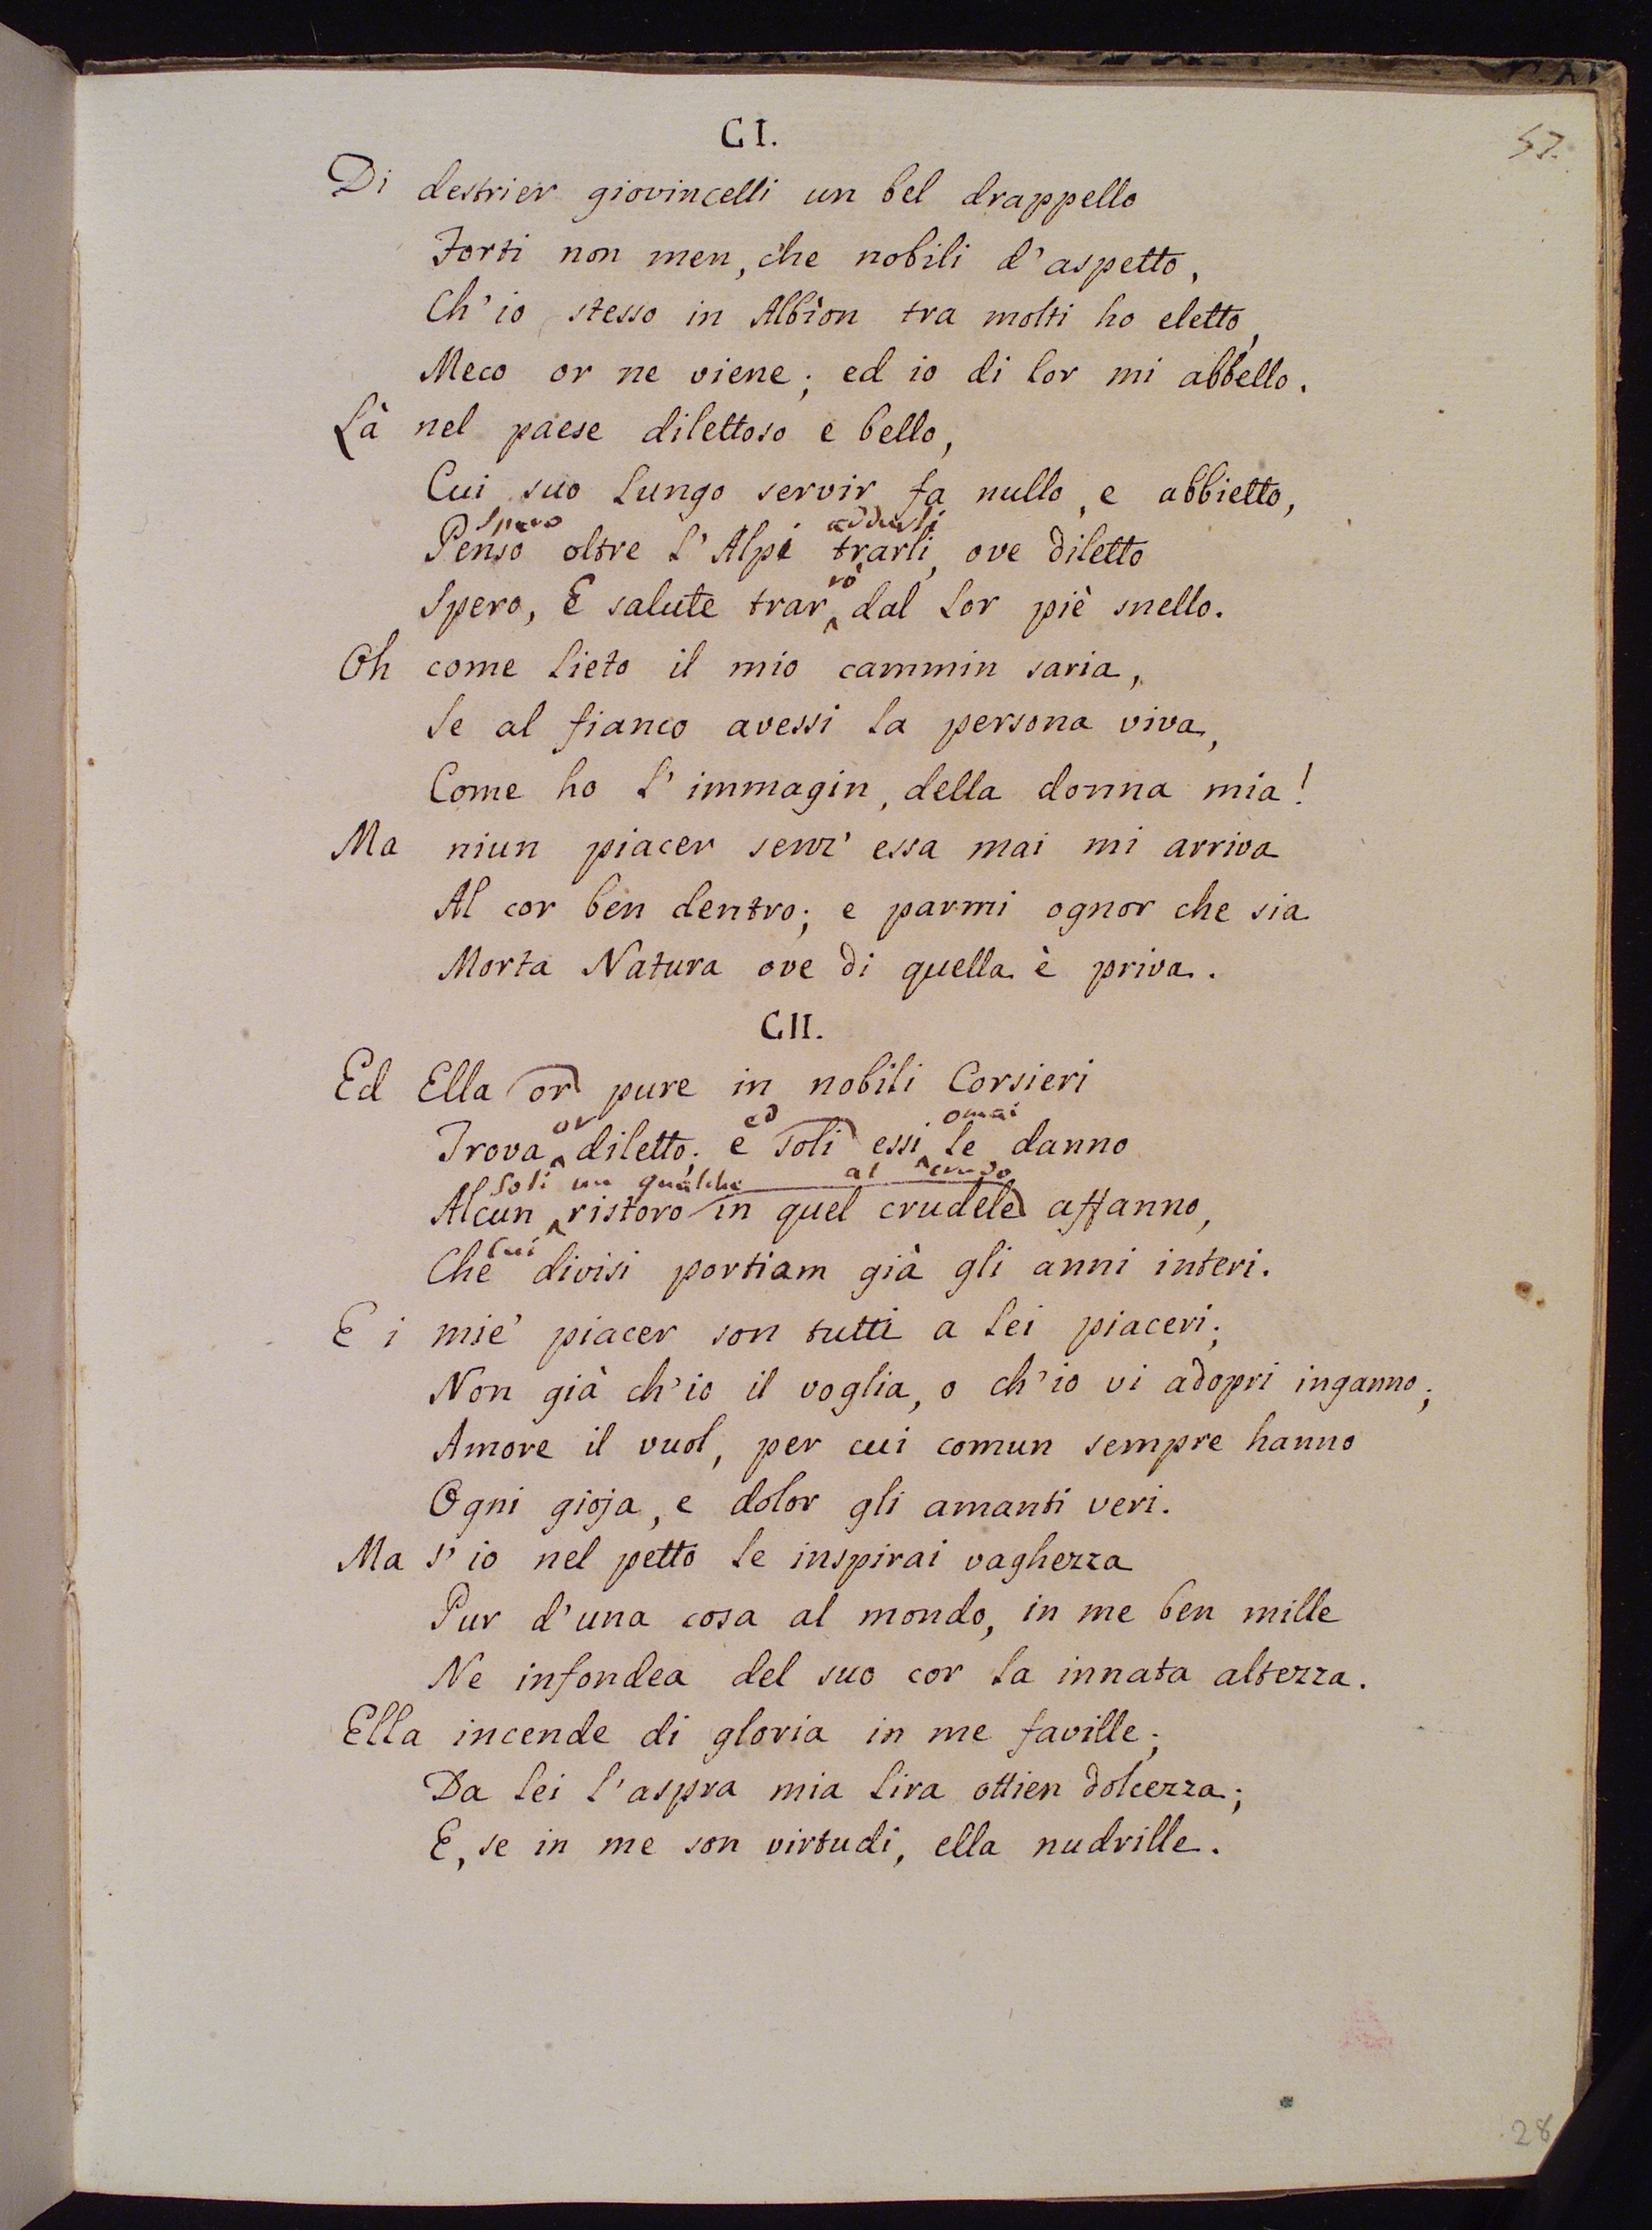 57.
CI.
Di destrier giovincelli un bel drappello
Forti non men, che nobili d'aspetto,
Ch'io stesso in Albion tra molti ho eletto,
Meco or ne viene; ed io di lor mi abbello.
Là nel paese dilettoso e bello,
Cui suo lungo servir fa nullo, e abbietto,
Spero addurli
Penso oltre l'Alpi trarli, ove diletto
rò
Spero, E salute trar dal lor piè snello.
Oh come lieto il mio cammin saria,
Se al fianco avessi la persona viva,
Come ho l'immagin, della donna mia!
Ma niun piacer senz' essa mai mi arriva
Al cor ben dentro; e parmi ognor che sia
Morta Natura ove di quella è priva.
CII.
Ed Ella or pure in nobili Corsieri
or ed omai
Trova diletto; e soli essi le danno
Soli un qualche al crudo
Alcun ristoro in quel crudele affanno,
Cui
Che divisi portiam già gli anni interi.
E i mie' piacer son tutti a lei piaceri;
Non già ch'io il voglia, o ch'io vi adopri inganno;
Amore il vuol, per cui comun sempre hanno
Ogni gioja, e dolor gli amanti veri.
Ma s'io nel petto le inspirai vaghezza
Pur d'una cosa al mondo, in me ben mille
Ne infondea del suo cor la innata altezza.
Ella incende di gloria in me faville;
Da lei l'aspra mia lira ottien dolcezza;
E, se in me son virtudi, ella nudrille.
28